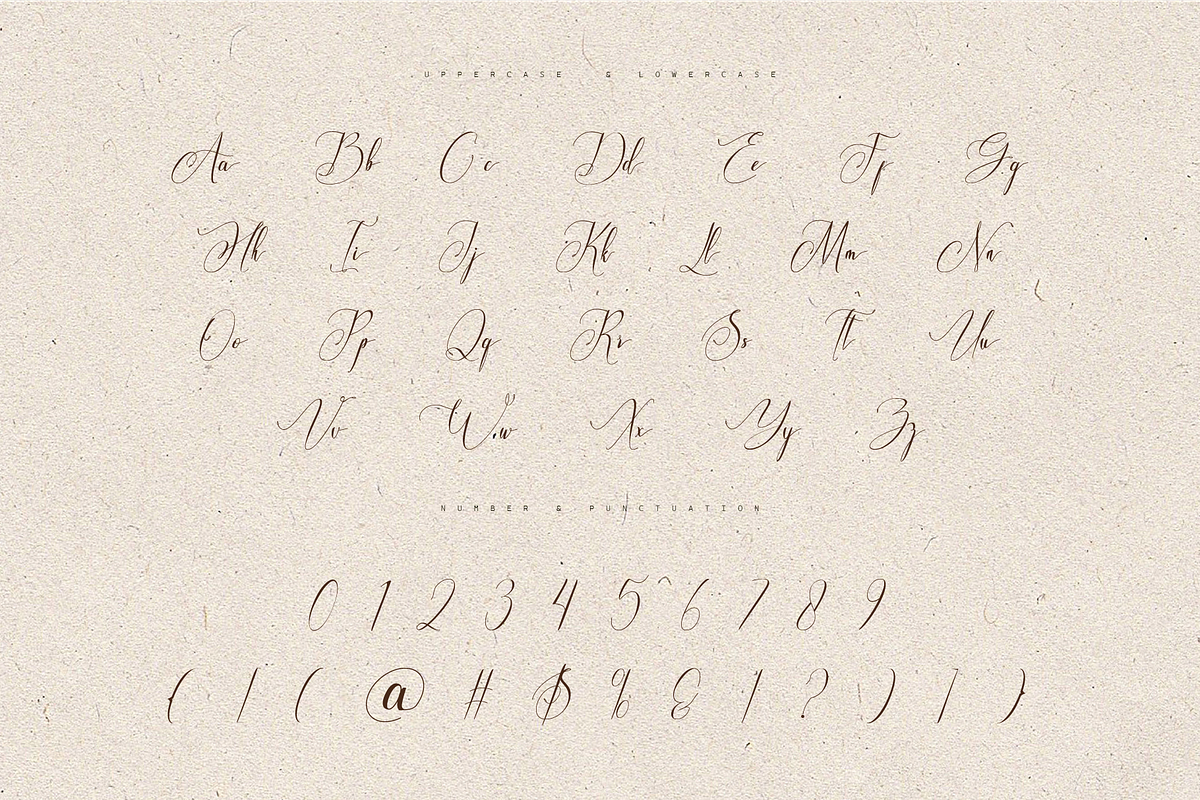 UPPERCASE & LOWERCASE
Aa Bb Cc Dd Ee Ff Gg
Hh Ii Jj Kk Ll Mm Nn
Oo Pp Qq Rr Ss Tt Uu
Vv Ww Xx Yy Zz
NUMBER & PUNCTUATION
0 1 2 3 4 5 6 7 8 9
{ [ ( @ # $ % & ! ? ) ] }